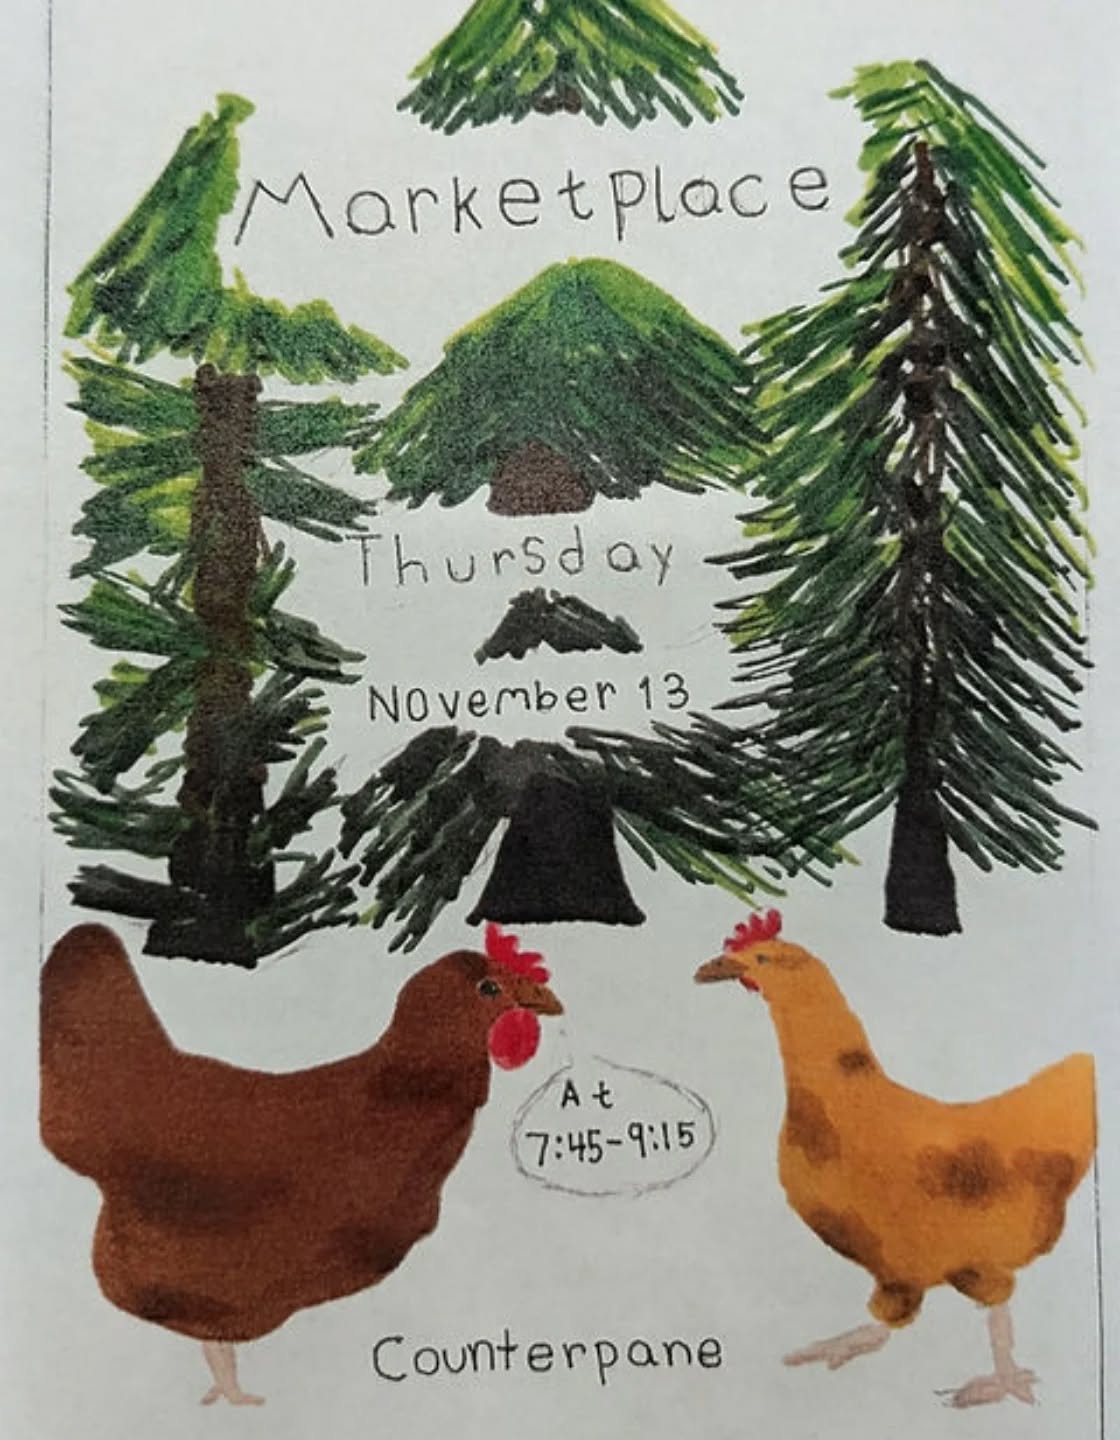 Marketplace
Thursday
November 13
At
7:45-9:15
Counterpane